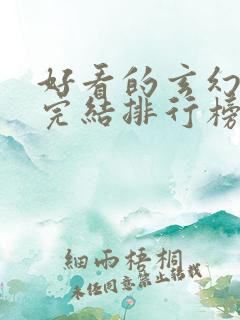 好看的玄幻
完结排行榜
细雨梧桐
未经同意禁止转载